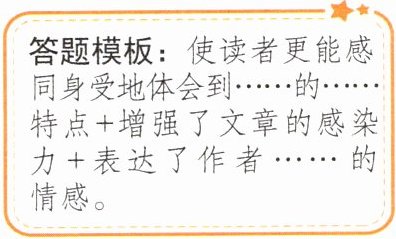 答题模板：使读者更能感
同身受地体会到……的……
特点+增强了文章的感染
力+表达了作者……的
情感。